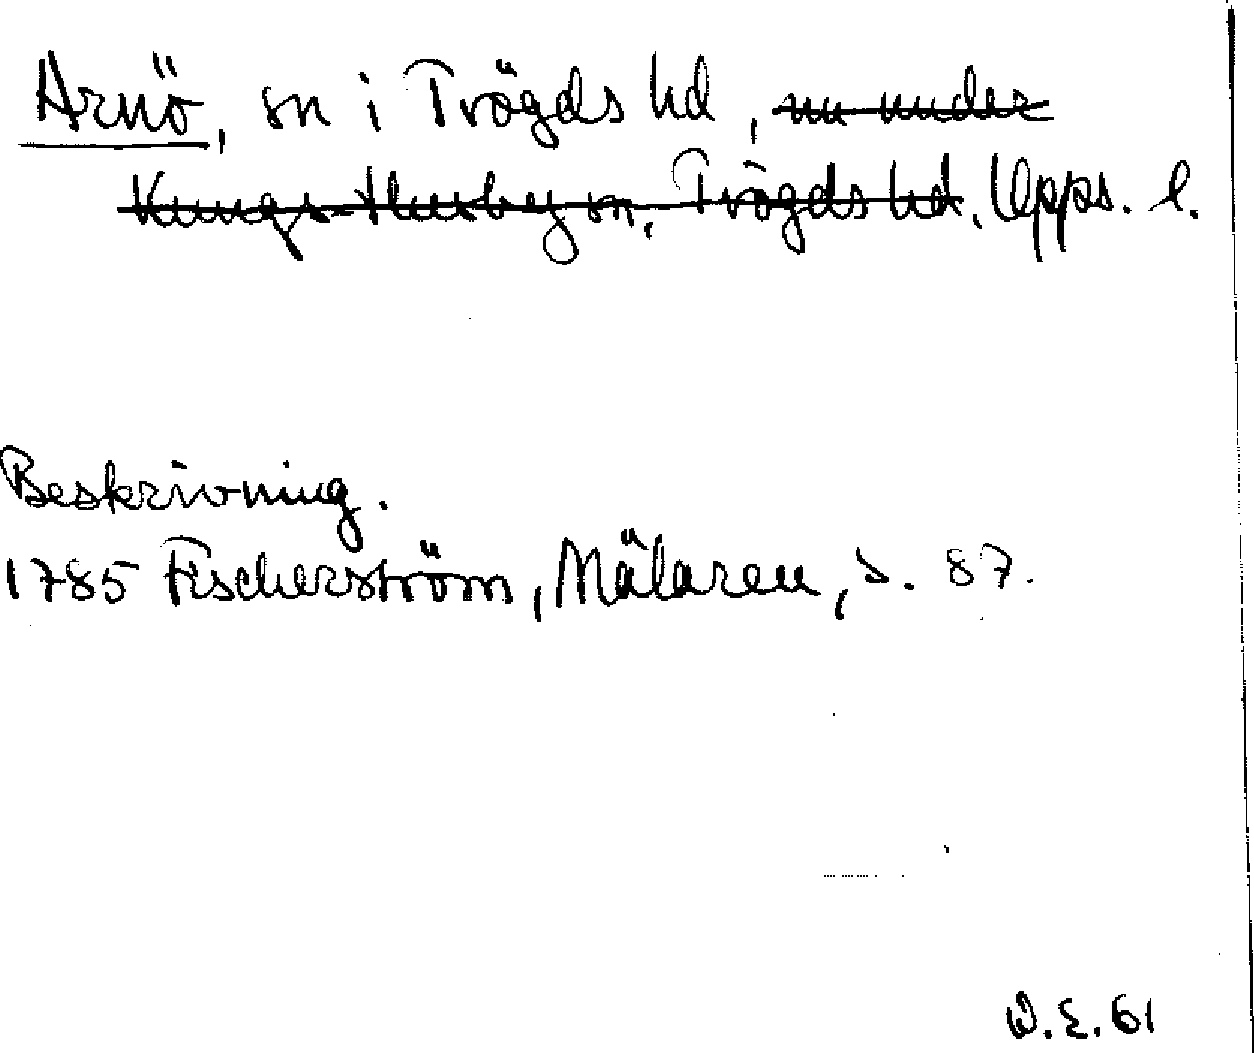 Arnö, sn i Trögds hd, nu under
Kungs-Husby sn, Trögds hd, Upps. l.
Beskrivning.
1785 Fischerström, Mälaren, s. 87.
W.E. 61